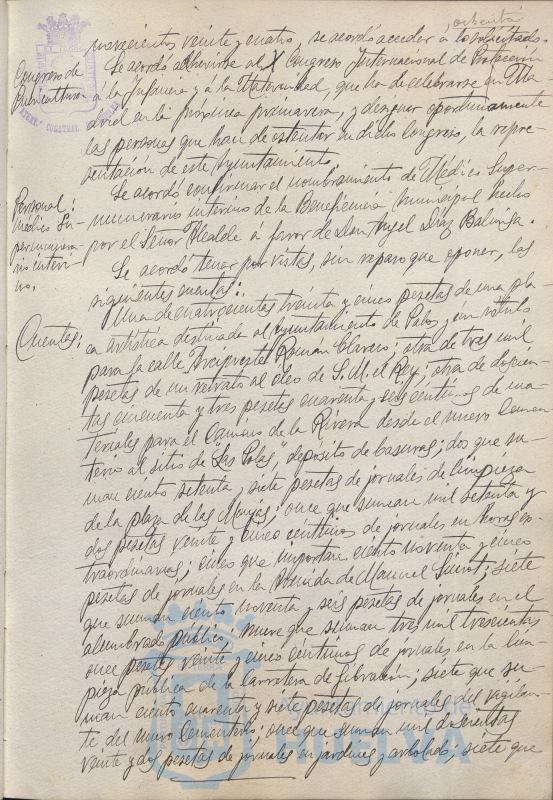 ochenta
novecientos veinte y cuatro, se acordó acceder a lo solicitado.
Congreso de
Puericultura
Se acordó adherirse al X Congreso Internacional de Protección
á la Infancia y á la Maternidad, que ha de celebrarse en Ma-
drid en la próxima primavera, y designar oportunamente
las personas que han de ostentar en dicho Congreso, la repre-
sentación de este Ayuntamiento.
Personal:
Médico Su-
pernumera-
rio interi-
no.
Se acordó confirmar el nombramiento de Médico Super-
numerario interino de la Beneficencia Municipal hecho
por el Señor Alcalde á favor de Don Angel Díaz
Se acordó tener por vistas, sin reparo que oponer, las
siguientes cuentas:
Cuentas:
Una de cuatrocientas treinta y cinco pesetas de una pla-
ca artística destinada al Ayuntamiento de Palos, y un rótulo
para la calle Arcipreste Roman Clavero; otra de tres mil
pesetas de un retrato al óleo de S. M. el Rey; otra de doscien-
tas cincuenta y tres pesetas cuarenta y seis céntimos de ma-
teriales para el Camino de la Rivera desde el nuevo Cemen-
terio al sitio de "Las Polas", depósito de basuras; dos que su-
man ciento setenta y siete pesetas de jornales de limpieza
de la plaza de las Monjas; once que suman mil setenta y
dos pesetas veinte y cinco céntimos de jornales en horas ex-
traordinarias; cinco que importan ciento noventa y cinco
pesetas de jornales en la Avenida de Manuel Siurot; siete
que suman ciento noventa y seis pesetas de jornales en el
alumbrado público, nueve que suman tres mil trescientas
once pesetas veinte y cinco céntimos de jornales en la lim-
pieza pública de la carretera de Gibraleón; siete que su-
man ciento cuarenta y siete pesetas de jornales del vigilan-
te del nuevo Cementerio; once que suman mil doscientas
veinte y dos pesetas de jornales en jardines y arbolado; siete que
Ayuntamiento de
HUELVA